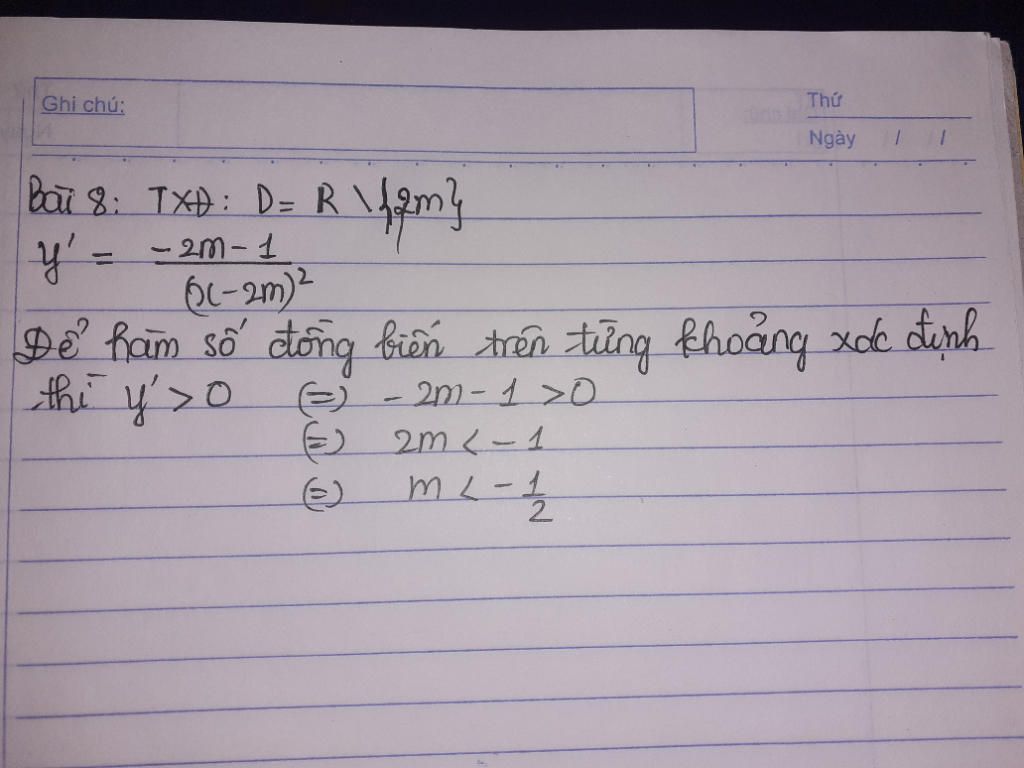 Ghi chú:
Thứ
Ngày / /
Bài 8: TXĐ: D = R \ {2m}
y' = \frac{-2m-1}{(x-2m)^2}
Để hàm số đồng biến trên từng khoảng xác định
thì y' > 0 (=) -2m-1 > 0
(=) 2m < -1
(=) m < -\frac{1}{2}